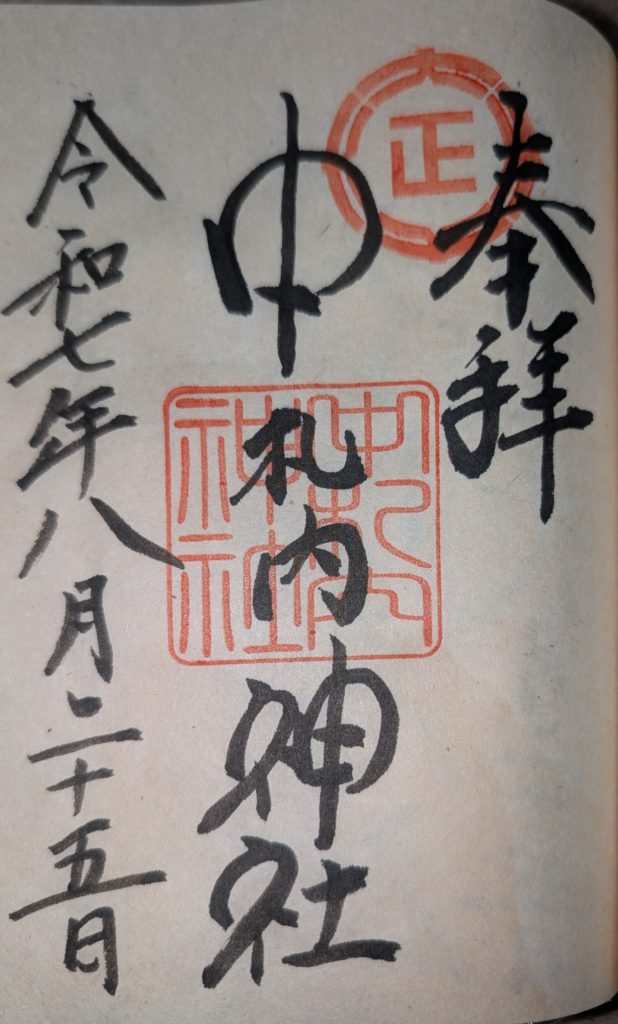 奉拝
正
中札内神社
中札内
神社
令和七年八月二十五日